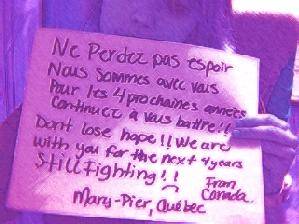 Ne Perdez pas espoir
Nous Sommes avec vous
Pour les 4 prochaines années
Continuez à vous battre!!
Dont lose hope!! We are
with you for the next 4 years
Still Fighting!!
From
Canada
Mary-Pier, Québec